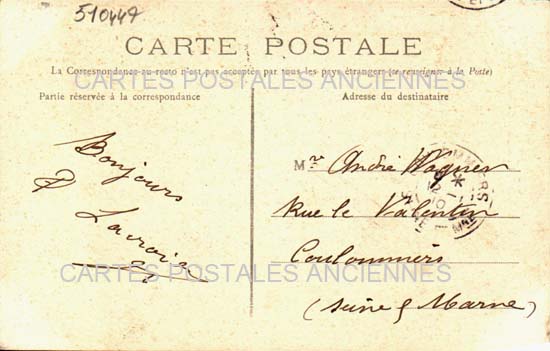 510447
CARTE POSTALE
La Correspondance au recto n'est pas acceptée par tous les pays étrangers (se renseigner à la Poste)
Partie réservée à la correspondance
Adresse du destinataire
Bonjours
Lacroix
Mr André Wagner
Rue le Valentin
Coulommiers
(Seine & Marne)
CARTES POSTALES ANCIENNES
CARTES POSTALES ANCIENNES